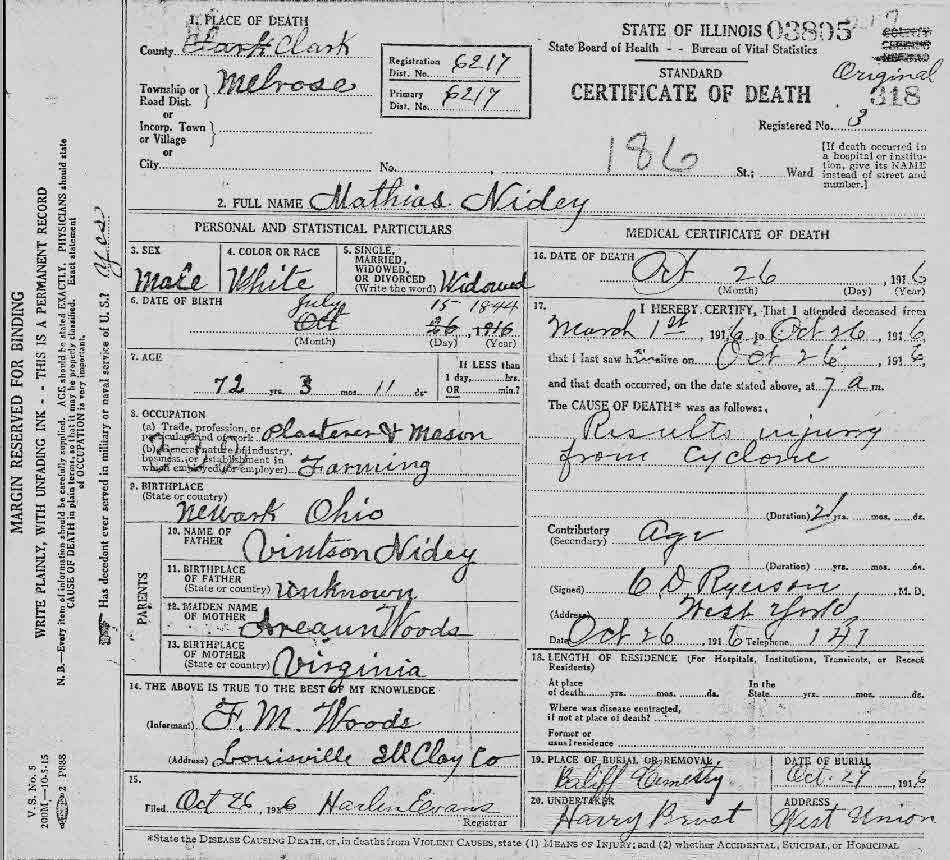 1. PLACE OF DEATH
County Clark Clark
Township or Road Dist. Melrose
or
Incorp. Town or Village
or
City No. St.; Ward
Registration Dist. No. 6217
Primary Dist. No. 6217
STATE OF ILLINOIS 03805
State Board of Health - - Bureau of Vital Statistics
STANDARD
CERTIFICATE OF DEATH
Original
318
Registered No. 3
186
[If death occurred in
a hospital or institu-
tion, give its NAME
instead of street and
number.]
2. FULL NAME Mathias Nidey
PERSONAL AND STATISTICAL PARTICULARS
3. SEX
Male
4. COLOR OR RACE
White
5. SINGLE,
MARRIED,
WIDOWED,
OR DIVORCED
(Write the word) Widowed
6. DATE OF BIRTH
July 15 1844
Oct 26, 1916
(Month) (Day) (Year)
7. AGE
72 yrs. 3 mos. 11 ds.
If LESS than
1 day, hrs.
OR min.?
8. OCCUPATION
(a) Trade, profession, or
particular kind of work Plasterer & Mason
(b) General nature of industry,
business, or establishment in
which employed (or employer) Farming
9. BIRTHPLACE
(State or country)
Newark Ohio
PARENTS
10. NAME OF
FATHER
Vintson Nidey
11. BIRTHPLACE
OF FATHER
(State or country) Unknown
12. MAIDEN NAME
OF MOTHER
Woods
13. BIRTHPLACE
OF MOTHER
(State or country) Virginia
14. THE ABOVE IS TRUE TO THE BEST OF MY KNOWLEDGE
(Informant) F. M. Woods
(Address) Louisville Ill Clay Co
15.
Filed Oct 26 1916 Harlen Evans
Registrar
MEDICAL CERTIFICATE OF DEATH
16. DATE OF DEATH Oct 26, 1916
(Month) (Day) (Year)
17. I HEREBY CERTIFY, That I attended deceased from
March 1st, 1916, to Oct 26, 1916
that I last saw him alive on Oct 26, 1916,
and that death occurred, on the date stated above, at 7 a m.
The CAUSE OF DEATH* was as follows:
Results injury
from Cyclone
(Duration) yrs. mos. ds.
Contributory
(Secondary) Age
(Duration) yrs. mos. ds.
(Signed) C D Ryerson M. D.
(Address) West York,
Date Oct 26 1916 Telephone 141
18. LENGTH OF RESIDENCE (For Hospitals, Institutions, Transients, or Recent
Residents)
At place
of death yrs. mos. ds.
In the
State yrs. mos. ds.
Where was disease contracted,
if not at place of death?
Former or
usual residence
19. PLACE OF BURIAL OR REMOVAL
Baliff Cemetery
DATE OF BURIAL
Oct. 27, 1916
20. UNDERTAKER
Harry Prust
ADDRESS
West Union
*State the DISEASE CAUSING DEATH, or, in deaths from VIOLENT CAUSES, state (1) MEANS OF INJURY; and (2) whether ACCIDENTAL, SUICIDAL, or HOMICIDAL
MARGIN RESERVED FOR BINDING
WRITE PLAINLY, WITH UNFADING INK - - THIS IS A PERMANENT RECORD
N. B.—Every item of information should be carefully supplied. AGE should be stated EXACTLY. PHYSICIANS should state
CAUSE OF DEATH in plain terms, so that it may be properly classified. Exact statement
of OCCUPATION is very important.
Has decedent ever served in military or naval service of U. S.? Yes
V. S. No. 5
200M—10-5-15
2 P888